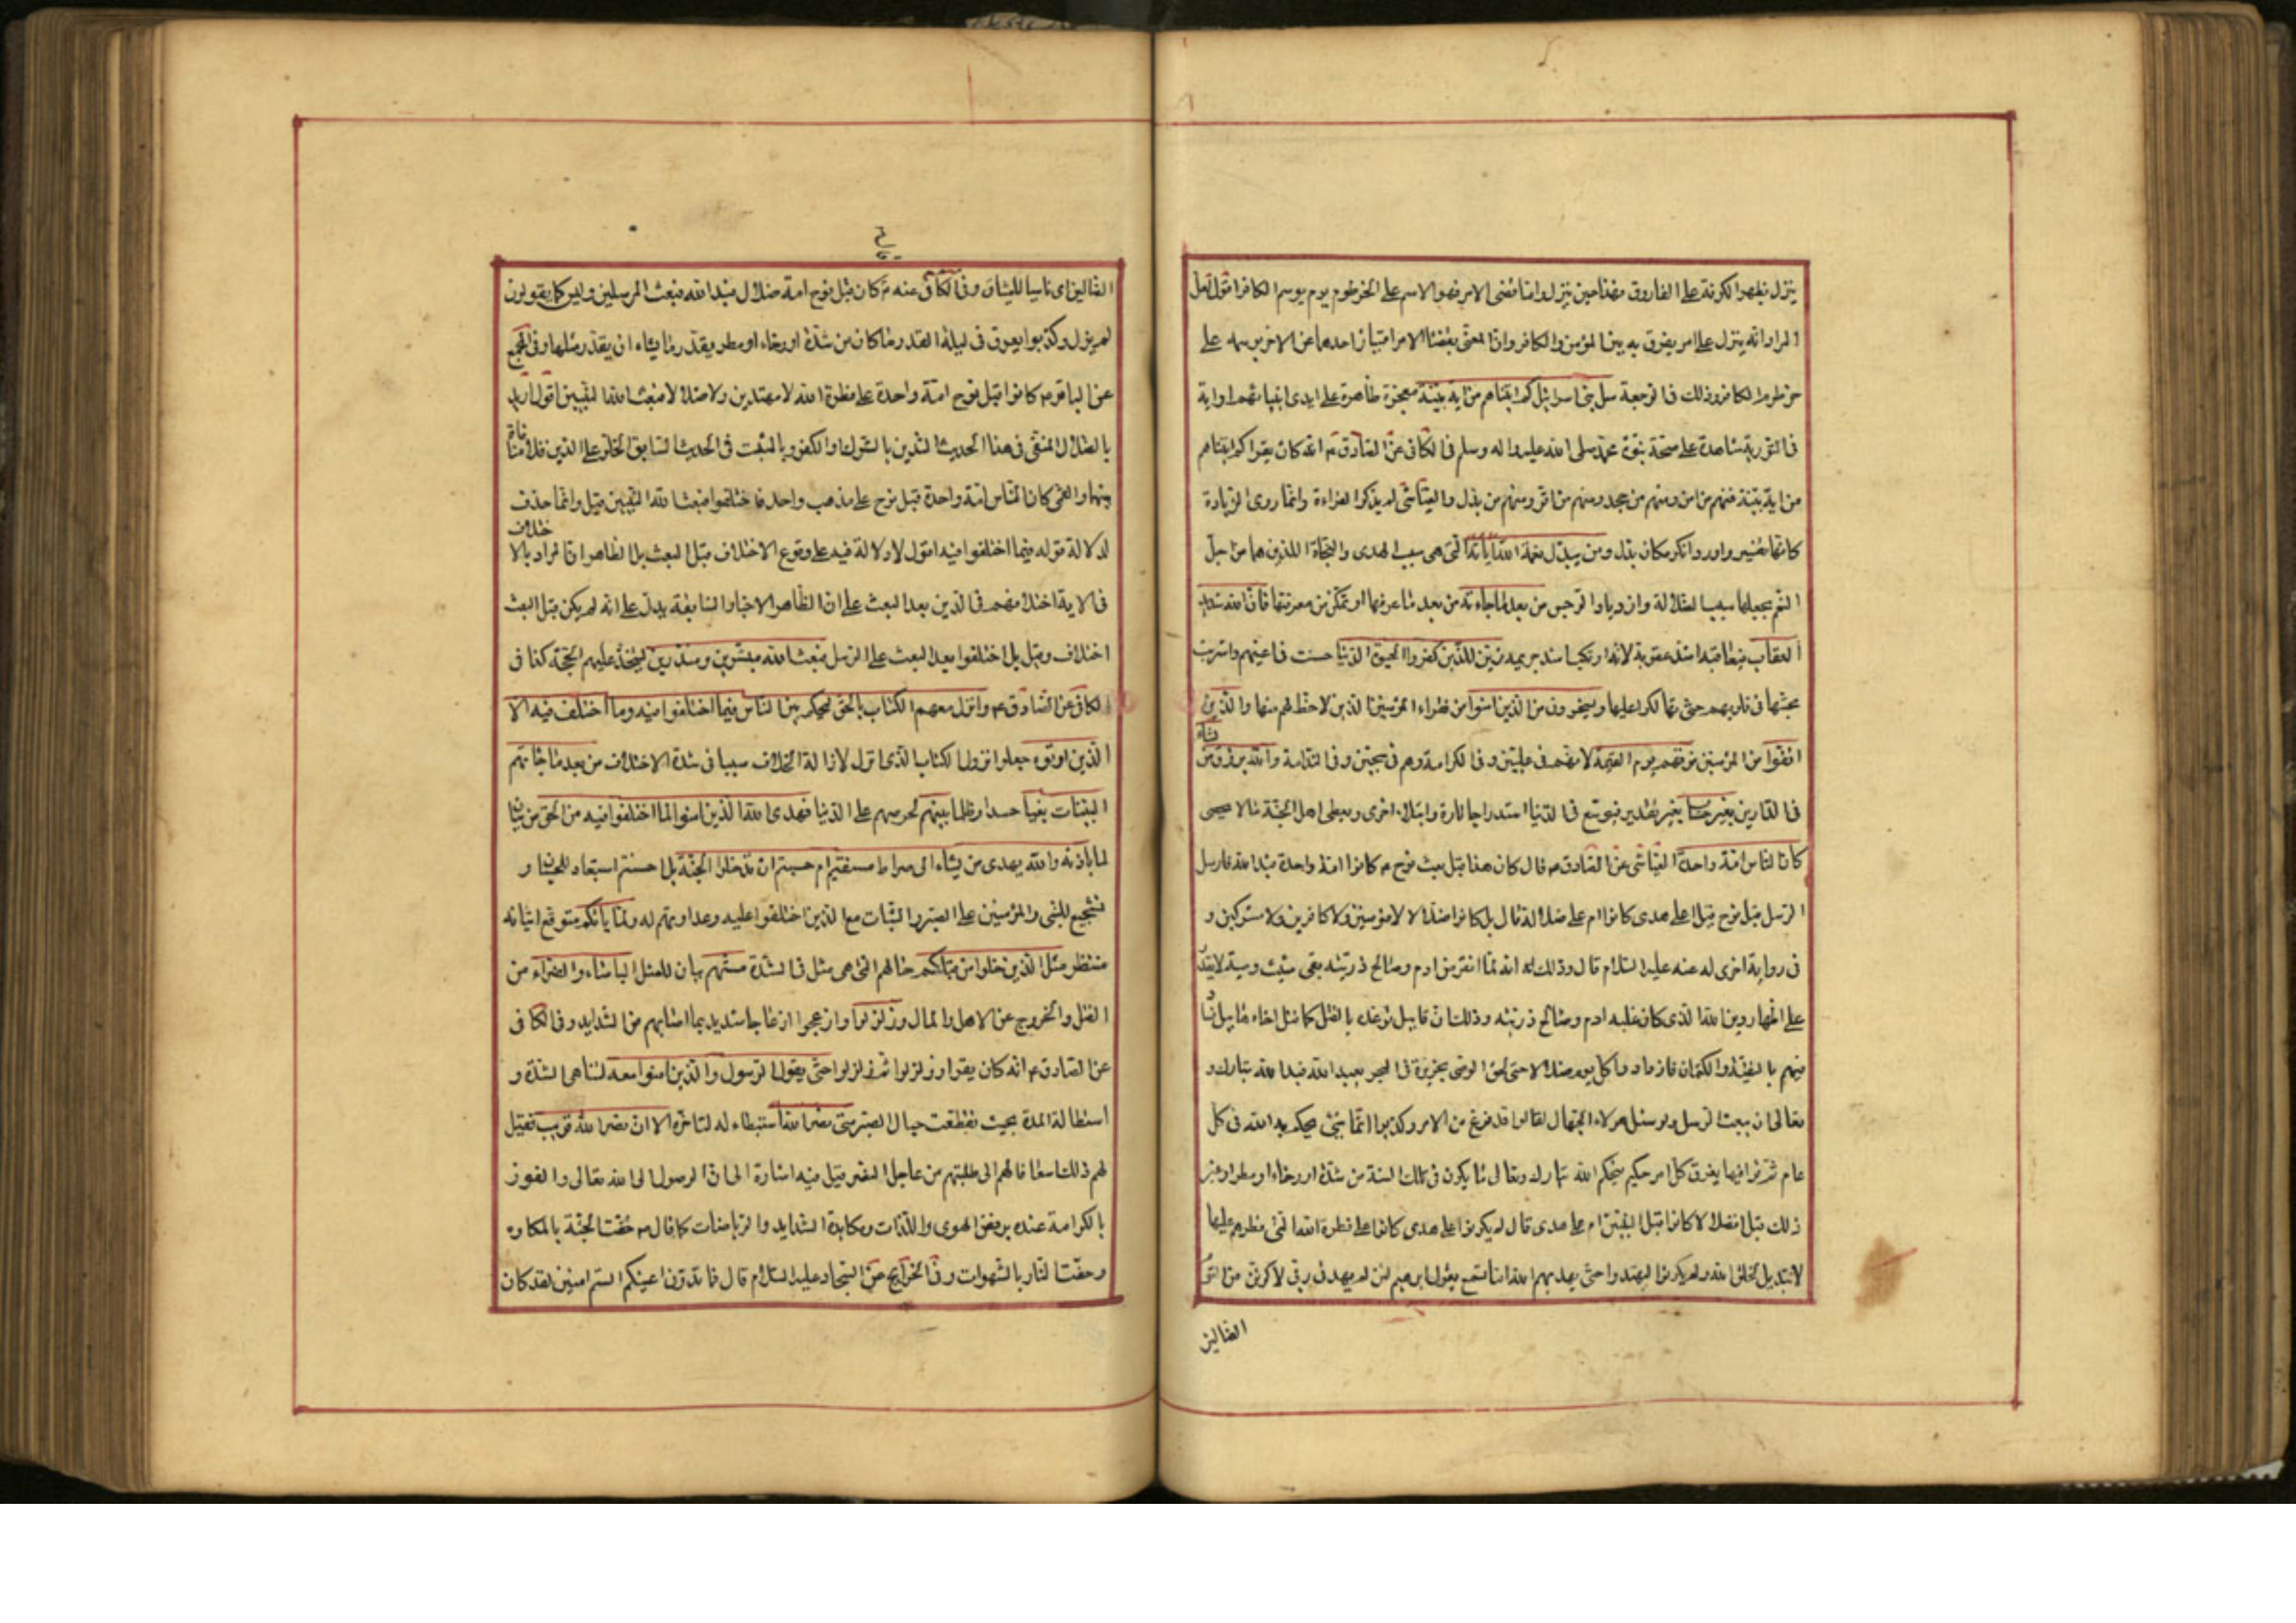 ينزل بظهر الكوفة على الفاروق فهذا حين ينزل واما قضى الامر فهو الاسم على الخرطوم يوم يوسم الكافر اقول لعل
المراد انه ينزل على امر يفرق به بين المؤمن والكافر وان المعنى بقضا الامر امتياز احدهما عن الاخر بوسمه على
خرطوم الكافر وذلك فى الرجعة سل بنى اسرائيل كم اتيناهم من اية بينة معجزة ظاهرة على ايدى انبيائهم او اية
فى التورية شاهدة على صحة نبوة محمد صلى الله عليه واله وسلم فى الكافى عن الصادق ع انه كان يقرا كم اتيناهم
من اية بينة فمنهم من امن ومنهم من جحد ومنهم من اقر ومنهم من بدل والعياشى لم يذكر القراءة وانما روى الزيادة
كانها تفسير واورد انكر مكان بدل ومن يبدل نعمة الله اياته التى هى سبب الهدى والنجاة اللذين هما من اجل
النعم بجعلها سبب الضلالة وازدياد الرجس من بعد ما جاءته من بعد ما عرفها او تمكن من معرفتها فان الله شديد
العقاب فيعاقبه اشد عقوبة لانه ارتكب اشد جريمة زين للذين كفروا الحيوة الدنيا حسنت فى اعينهم واشربت
محبتها فى قلوبهم حتى تهالكوا عليها ويسخرون من الذين امنوا من فقراء المؤمنين الذين لا حظ لهم منها والذين
اتقوا من المؤمنين فوقهم يوم القيمة لانهم فى عليين وفى الكرامة وهم فى سجين وفى الندامة والله يرزق من يشاء
فى الدارين بغير حساب بغير تقدير فيوسع فى الدنيا استدراجا تارة وابتلاء اخرى ويعطى اهل الجنة ما لا يحصى
كان الناس امة واحدة العياشى عن الصادق ع قال كان هذا قبل بعث نوح ع كانوا امة واحدة فبدا لله فارسل
الرسل قبل نوح قيل اعلى هدى كانوا ام على ضلالة قال بل كانوا ضلالا لا مؤمنين ولا كافرين ولا مشركين و
فى رواية اخرى له عنه عليه السلام قال وذلك انه لما انقرض ادم وصالح ذريته بقى شيث وصيه لا يقدر
على اظهار دين الله الذى كان عليه ادم وصالح ذريته وذلك ان قابيل توعده بالقتل كما قتل اخاه هابيل فسار
فيهم بالتقية والكتمان فازدادوا كل يوم ضلالا حتى لحق الوصى بجزيرة فى البحر يعبد الله فبدا لله تبارك و
تعالى ان يبعث الرسل ولو سئل هؤلاء الجهال لقالوا قد فرغ من الامر وكذبوا انما شئ يحكم به الله فى كل
عام ثم قرا فيها يفرق كل امر حكيم فيحكم الله تبارك وتعالى ما يكون فى تلك السنة من شدة او رخاء او مطر او غير
ذلك قيل افضلالا كانوا قبل النبيين ام على هدى قال لم يكونوا على هدى كانوا على فطرة الله التى فطرهم عليها
لا تبديل لخلق الله ولم يكونوا ليهتدوا حتى يهديهم الله اما تسمع بقول ابرهيم لئن لم يهدنى ربى لاكونن من القوم
الضالين
الضالين اى ناسيا للميثاق وفى الكافى عنه ع كان قبل نوح امة ضلال فبدا لله فبعث المرسلين وليس كما يقولون
لم يزل وكذبوا يفرق فى ليلة القدر ما كان من شدة او رخاء او مطر بقدر ما يشاء ان يقدر مثلها وفى المجمع
عن الباقر ع كانوا قبل نوح امة واحدة على فطرة الله لا مهتدين ولا ضلالا فبعث الله النبيين اقول اريد
بالضلال المنفى فى هذا الحديث التدين بالشرك والكفر وبالمثبت فى الحديث السابق الخلو على الدين فلا منافاة
بينهما والمعنى كان الناس امة واحدة قبل نوح على مذهب واحد فاختلفوا فبعث الله النبيين قيل وانما حذف
لدلالة قوله فيما اختلفوا فيه اقول لا دلالة فيه على وقوع الاختلاف قبل البعث بل الظاهر ان المراد بالاختلاف
فى الاية اختلافهم فى الدين بعد البعث على ان الظاهر الاخبار السابقة يدل على انه لم يكن قبل البعث
اختلاف وقيل بل اختلفوا بعد البعث على الرسل فبعث الله مبشرين ومنذرين ليتخذ عليهم الحجة كذا فى
الكافى عن الصادق ع وانزل معهم الكتاب بالحق ليحكم بين الناس فيما اختلفوا فيه وما اختلف فيه الا
الذين اوتوه جعلوا نزول الكتاب الذى انزل لازالة الخلاف سببا فى شدة الاختلاف من بعد ما جائتهم
البينات بغيا حسدا وظلما بينهم لحرصهم على الدنيا فهدى الله الذين امنوا لما اختلفوا فيه من الحق من بيان
لما باذنه والله يهدى من يشاء الى صراط مستقيم ام حسبتم ان تدخلوا الجنة بل احسبتم استبعاد للحسبان و
تشجيع للنبى والمؤمنين على الصبر والثبات مع الذين اختلفوا عليه وعداوتهم له ولما ياتكم متوقع اتيانه
منتظر مثل الذين خلوا من قبلكم حالهم التى هى مثل فى الشدة مستهم بيان للمثل الباساء والضراء من
القتل والخروج عن الاهل والمال وزلزلوا وازعجوا ازعاجا شديدا بما اصابهم من الشدايد وفى الكافى
عن الصادق ع انه كان يقرا وزلزلوا ثم زلزلوا حتى يقول الرسول والذين امنوا معه لتناهى الشدة و
استطالة المدة بحيث تقطعت حبال الصبر متى نصر الله استبطاء له لتاخره الا ان نصر الله قريب فقيل
لهم ذلك اسعافا لهم الى طلبتهم من عاجل النصر قيل فيه اشارة الى ان الوصول الى الله تعالى والفوز
بالكرامة عنده برفض الهوى واللذات ومكابدة الشدايد والرياضات كما قال ع حفت الجنة بالمكاره
وحفت النار بالشهوات وفى الخرايج عن السجاد عليه السلام قال فما تمدون اعينكم الستم امنين لقد كان